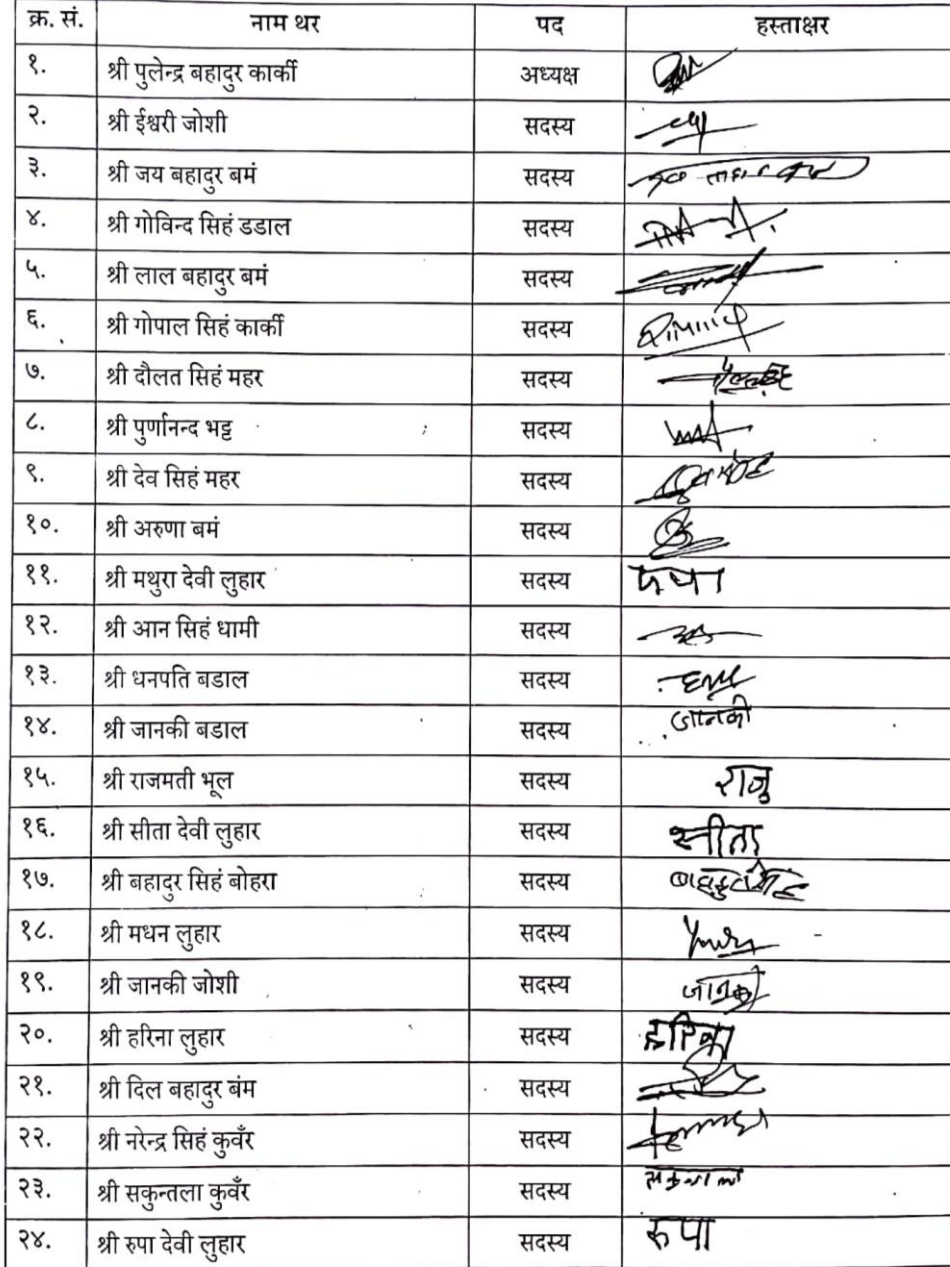 क्र. सं. नाम थर पद हस्ताक्षर
१. श्री पुलेन्द्र बहादुर कार्की अध्यक्ष
२. श्री ईश्वरी जोशी सदस्य
३. श्री जय बहादुर बमं सदस्य
४. श्री गोविन्द सिहं डडाल सदस्य
५. श्री लाल बहादुर बमं सदस्य
६. श्री गोपाल सिहं कार्की सदस्य
७. श्री दौलत सिहं महर सदस्य
८. श्री पुर्णानन्द भट्ट सदस्य
९. श्री देव सिहं महर सदस्य
१०. श्री अरुणा बमं सदस्य
११. श्री मथुरा देवी लुहार सदस्य
१२. श्री आन सिहं धामी सदस्य
१३. श्री धनपति बडाल सदस्य
१४. श्री जानकी बडाल सदस्य जानकी
१५. श्री राजमती भूल सदस्य राजु
१६. श्री सीता देवी लुहार सदस्य सीता
१७. श्री बहादुर सिहं बोहरा सदस्य
१८. श्री मधन लुहार सदस्य
१९. श्री जानकी जोशी सदस्य जानकी
२०. श्री हरिना लुहार सदस्य
२१. श्री दिल बहादुर बंम सदस्य
२२. श्री नरेन्द्र सिहं कुवँर सदस्य
२३. श्री सकुन्तला कुवँर सदस्य
२४. श्री रुपा देवी लुहार सदस्य रुपा